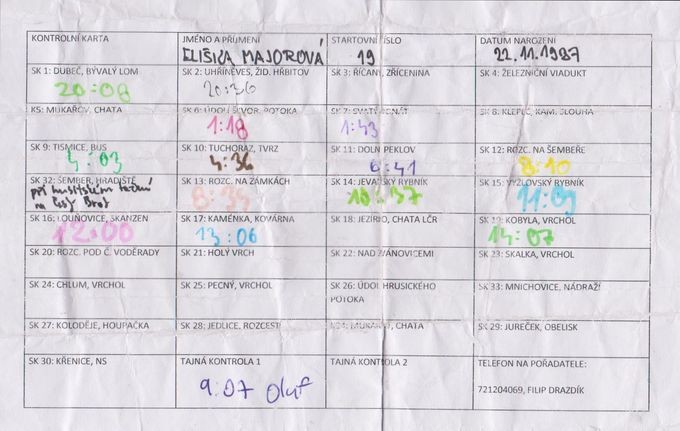 KONTROLNÍ KARTA
JMÉNO A PŘÍJMENÍ
ELIŠKA MAJOROVÁ
STARTOVNÍ ČÍSLO
19
DATUM NAROZENÍ
22.11.1987
SK 1: DUBEČ, BÝVALÝ LOM
20:08
SK 2: UHŘÍNĚVES, ŽID. HŘBITOV
20:36
SK 3: ŘÍČANY, ZŘÍCENINA
SK 4: ŽELEZNIČNÍ VIADUKT
K5: MUKAŘOV, CHATA
SK 6: ÚDOLÍ ŠVOR. POTOKA
1:18
SK 7: SVATÝ DONÁT
1:43
SK 8: KLEPEC, KAM. SLOUHA
SK 9: TISMICE, BUS
4:03
SK 10: TUCHORAZ, TVRZ
4:36
SK 11: DOLN PEKLOV
6:41
SK 12: ROZC. NA ŠEMBEŘE
8:10
SK 32: ŠEMBER, HRADIŠTĚ
při husitském
na Český Brod
SK 13: ROZC. NA ZÁMKÁCH
SK 14: JEVANSKÝ RYBNÍK
10:37
SK 15: VYŽLOVSKÝ RYBNÍK
11:09
SK 16: LOUŇOVICE, SKANZEN
12:00
SK 17: KAMÉNKA, KOVÁRNA
13:06
SK 18: JEZÍRKO, CHATA LČR
SK 19: KOBYLA, VRCHOL
14:07
SK 20: ROZC. POD Č. VODĚRADY
SK 21: HOLÝ VRCH
SK 22: NAD ŽÁNOVICEMI
SK 23: SKALKA, VRCHOL
SK 24: CHLUM, VRCHOL
SK 25: PECNÝ, VRCHOL
SK 26: ÚDOLÍ HRUSICKÉHO
POTOKA
SK 33: MNICHOVICE, NÁDRAŽÍ
SK 27: KOLODĚJE, HOUPAČKA
SK 28: JEDLICE, ROZCESTÍ
MUKAŘOV, CHATA
SK 29: JUREČEK, OBELISK
SK 30: KŘENICE, NS
TAJNÁ KONTROLA 1
9:07 Oluf
TAJNÁ KONTROLA 2
TELEFON NA POŘADATELE:
721204069, FILIP DRAZDÍK